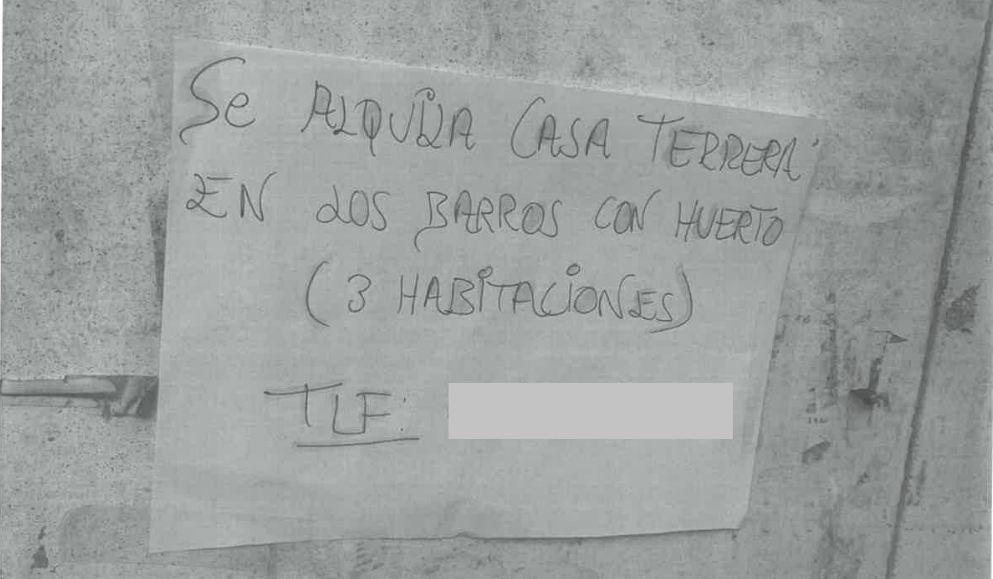 Se ALQUiLA CASA TERRERA
EN LOS BARROS CON HUERTO
(3 HABiTACiONES)
TLF: